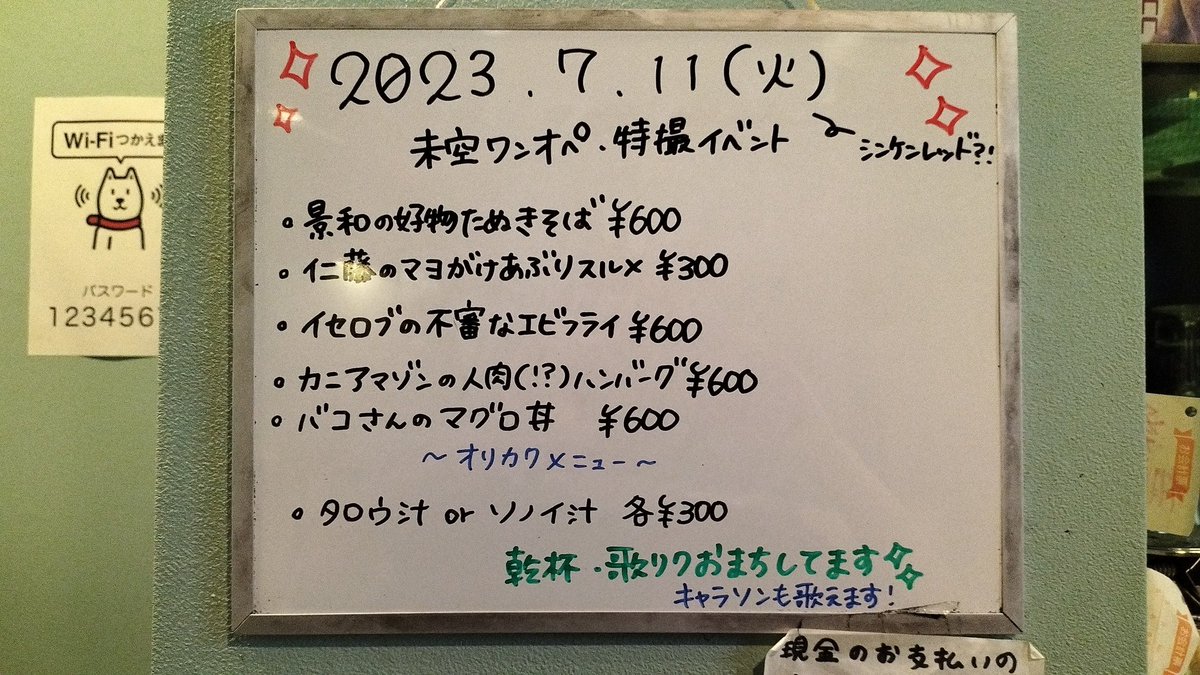 2023.7.11(火)
未空ワンオペ・特撮イベント
シンケンレッド?!
。景和の好物たぬきそば ¥600
。仁藤のマヨがけあぶりスルメ ¥300
。イセロブの不審なエビフライ ¥600
。カニアマゾンの人肉(!?)ハンバーグ ¥600
。バコさんのマグロ丼 ¥600
~オリカクメニュー~
。タロウ汁 or ソノイ汁 各¥300
乾杯・歌リクおまちしてます
キャラソンも歌えます!
Wi-Fiつかえま
パスワード
1234567
現金のお支払いの